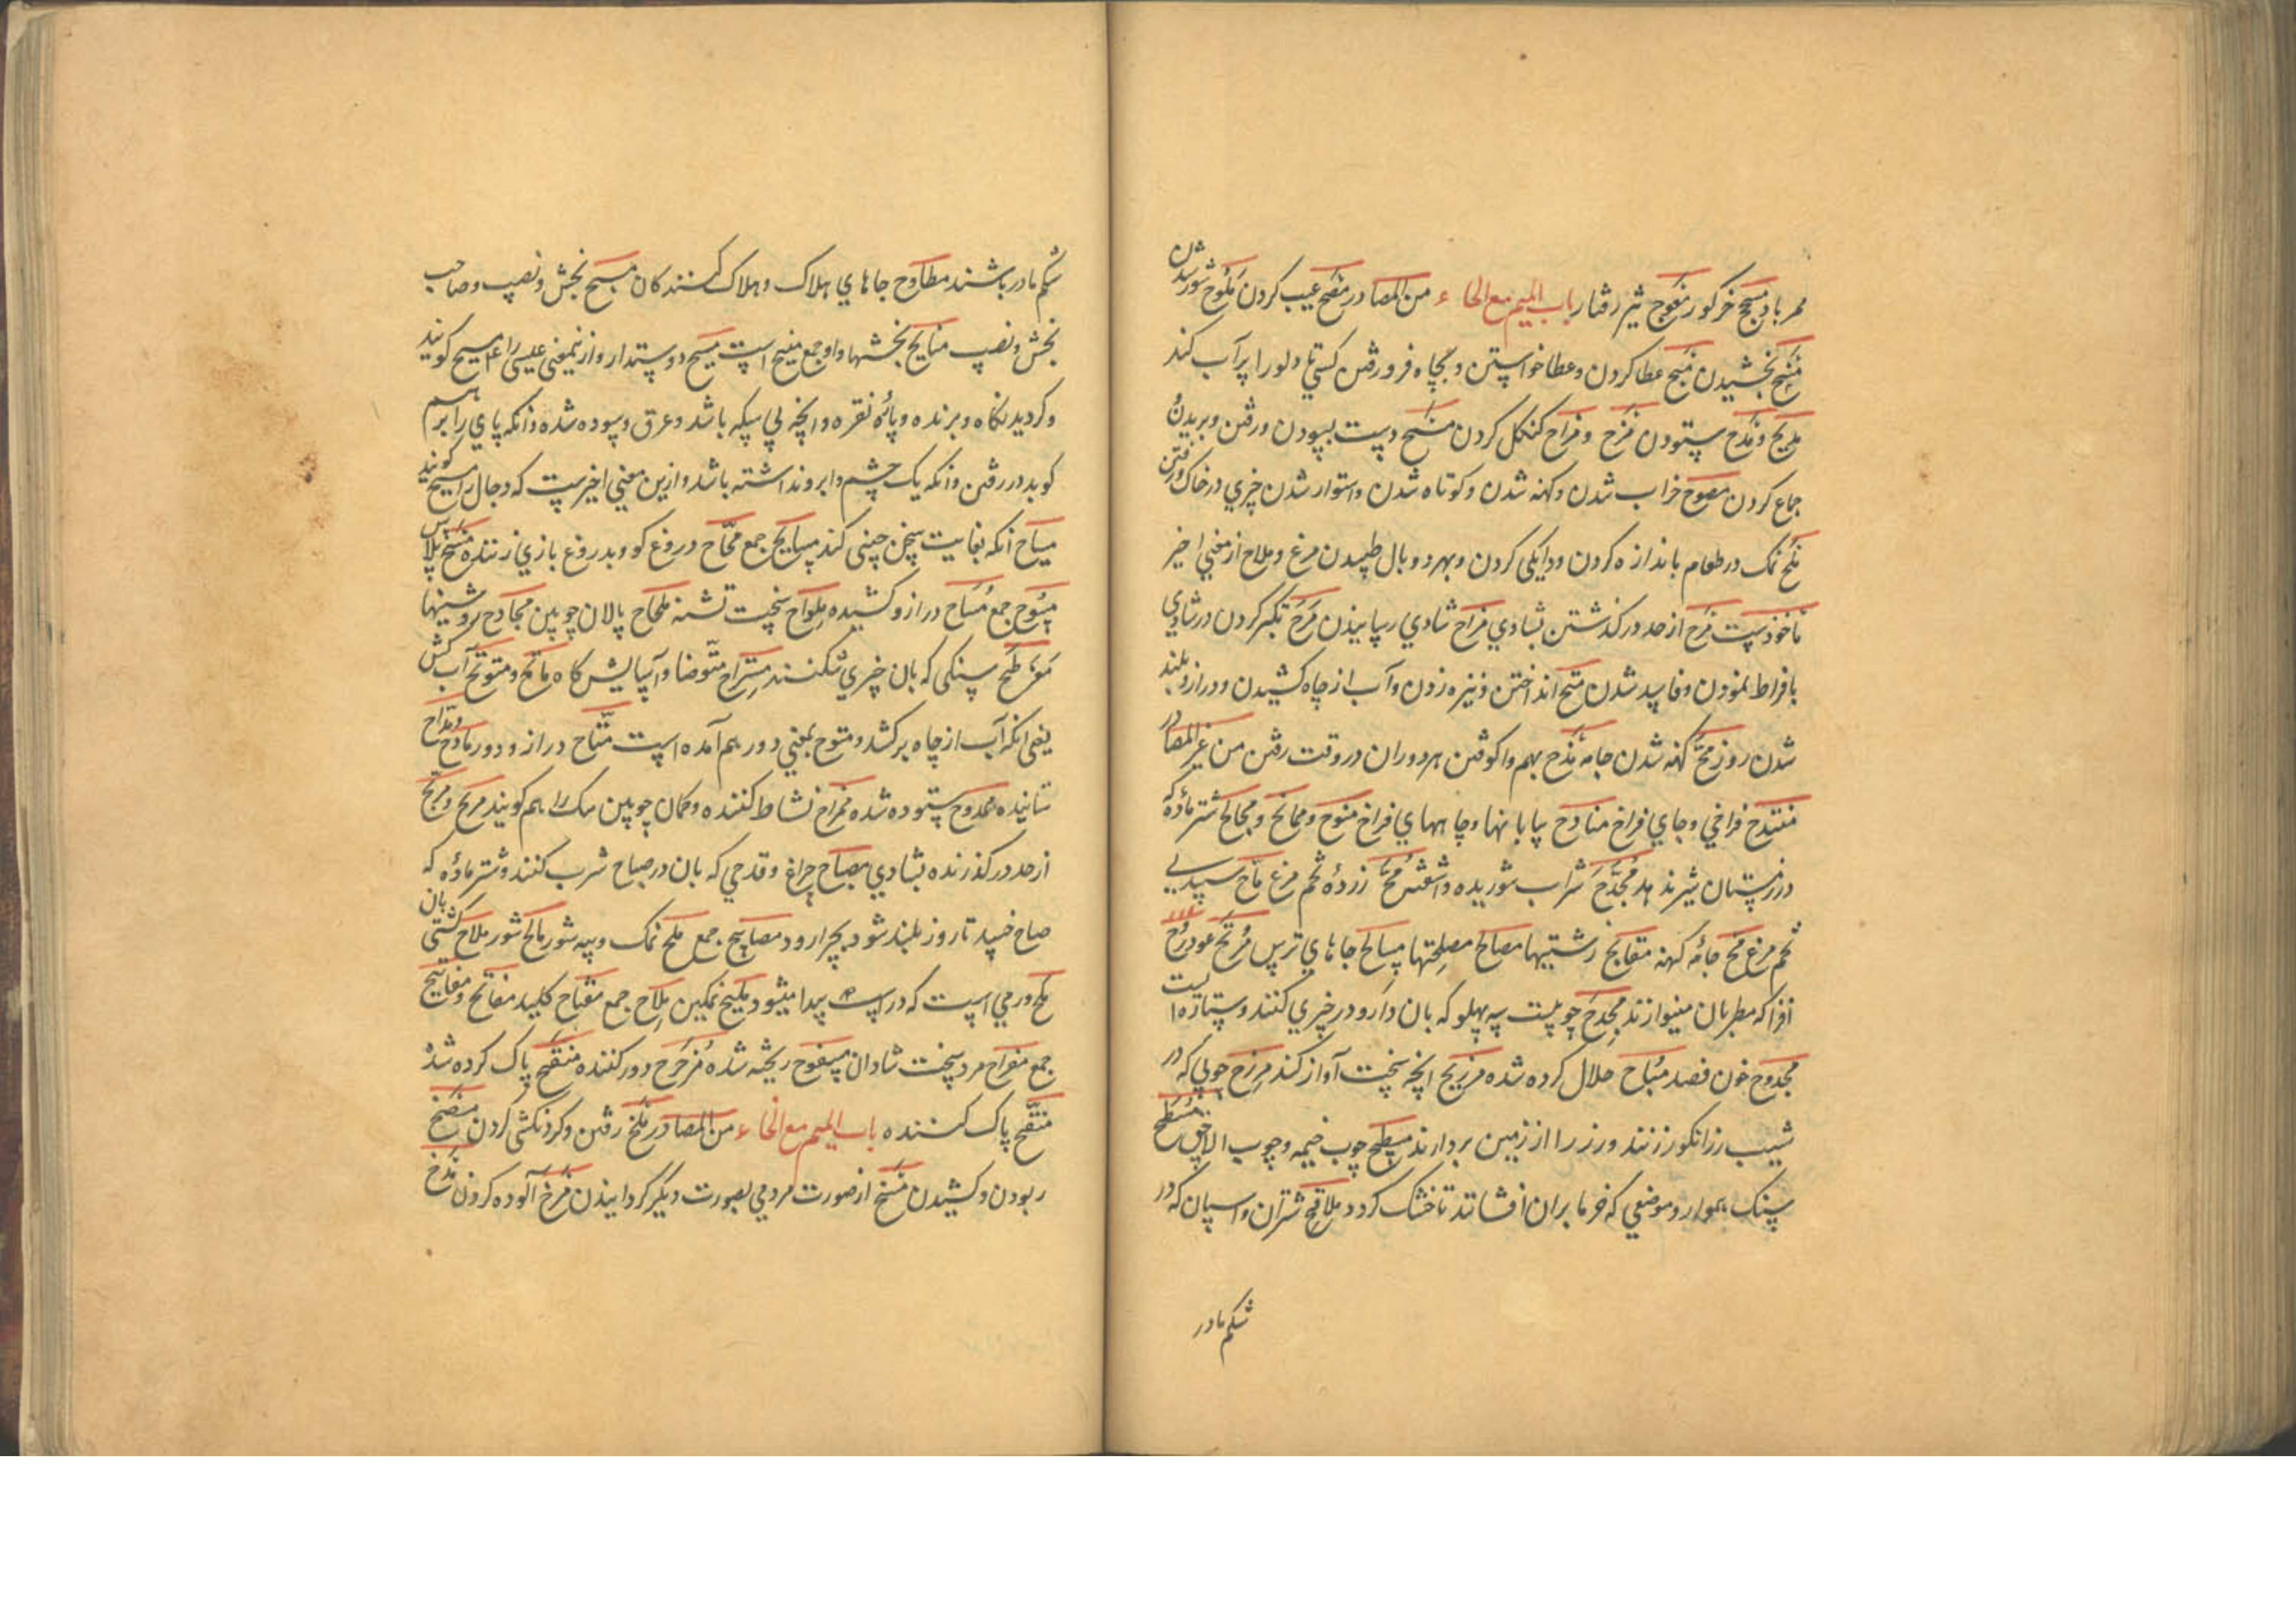 ممر باد مسبح خرکور منعوج تیز رفتار باب المیم مع الحاء من المصادر مقبح عیب کردن ملوح شوریدن
منح بخشیدن منح عطا کردن و عطا خواستن و بچاه فرو رفتن کسی تا دلو را پر آب کند
مدیح و مدح ستودن مزح و مزاح کنکل کردن مسح دست بسودن و رفتن و بریدن
جماع کردن مصوح خراب شدن و کهنه شدن و کوتاه شدن و استوار شدن چیزی در خاک و رفتن
ملح نمک در طعام بانداز ه کردن و دایکی کردن و بهر دو بال طپیدن مرغ و ملاح از معنی اخیر
ماخوذست مرح از حد در کذشتن بشادی مراح شادی رسانیدن مرح تکبر کردن در شادی
بافراط نمودن و فاسد شدن متح انداختن و نیزه زدن و آب از چاه کشیدن و دراز و بلند
شدن روز مح کهنه شدن جامه مذح بهم واکوفتن هر دو ران در وقت رفتن من غیر المصادر
منتدح فراخی و جای فراخ منادح بیابانها و چاههای فراخ منوح و ممانح و مجالح شتر ماده که
در زمستان شیر ندهد مجدح شراب شوریده و آشفته مح زرده تخم مرغ ماح سپیدی
تخم مرغ مح جامه کهنه مقابح زشتیها مصالح مصلحتها مسالح جاهای ترس مرنح عود
افزا که مطربان مینوازند مجدح چوبیست سه پهلو که بان دارو در چیزی کنند و ستاره ایست
مجدوح خون فصد مباح حلال کرده شده مزیح انچه سخت آواز کند مرزح چوبی که در
شیب رز انکور زنند و رز را از زمین بردارند مسطح چوب خیمه و چوب الاچق مسطح
سنک هموار و موضعی که خرما بران افشانند تا خشک کردد ملاقح شتران و اسپان که در
شکم مادر
شکم مادر باشند مطاوح جاهای هلاک و هلاک کنندکان مسیح بخش و نصیب و صاحب
بخش و نصیب منایح بخششها و او جمع منیح است مسیح دوستدار و ازینمعنی عیسی را ع م مسیح کویند
و کردیدنکاه و برنده و پاره نقره و انچه بی سکه باشد و عرق و سوده شده و انکه پای را بر هم
کوبد در رفتن و انکه یک چشم و ابرو نداشته باشد و ازین معنی اخیرست که دجال را مسیح کویند
مساح انکه بغایت سخن چینی کند مسایح جمع محاح دروغ کو و بدروغ بازی زننده مسح پلاس
مسوح جمع مساح دراز و کشیده ملواح سخت تشنه ملحاح پالان چوبین مجادح روشنیها
مفرطح سنکی که بان چیزی شکنند مستراح متوضا و آسایش کاه ماتح و متوح آب کش
یعنی انکه آب از چاه برکشد و متوح بمعنی دور هم آمده است متاح دراز و دور مادح و مداح
ستاینده ممدوح ستوده شده ممراح نشاط کننده و کمان چوبین سک را هم کویند مرح و مریح
از حد در کذرنده بشادی مصباح چراغ و قدحی که بان در صباح شرب کنند و شتر ماده که
صباح خسپد تا روز بلند شود بچرا رود مصابیح جمع ملح نمک و پیه شور مالح شور ملاح کشتی بان
ملح ورمی است که در اسب پیدا میشود ملیح نمکین ملاح جمع مفتاح کلید مفاتح و مفاتیح
جمع مفراح مرد سخت شادان مسفوح ریخته شده مزحزح دور کننده منقح پاک کرده شد
منقح پاک کننده باب المیم مع الخاء من المصادر ملخ رفتن و کردنکشی کردن
ربودن و کشیدن مسخ از صورت مردمی بصورت دیکر کردانیدن مرخ آلوده کردن مدخ